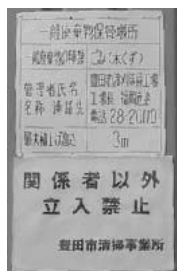 一般廃棄物保管場所
一般廃棄物の種類 ごみ(木くず)
管理者氏名
名称 連絡先
工場長
電話 28-2010
最大積上げ高さ 3m
関係者以外
立入禁止
豊田市清掃事業所